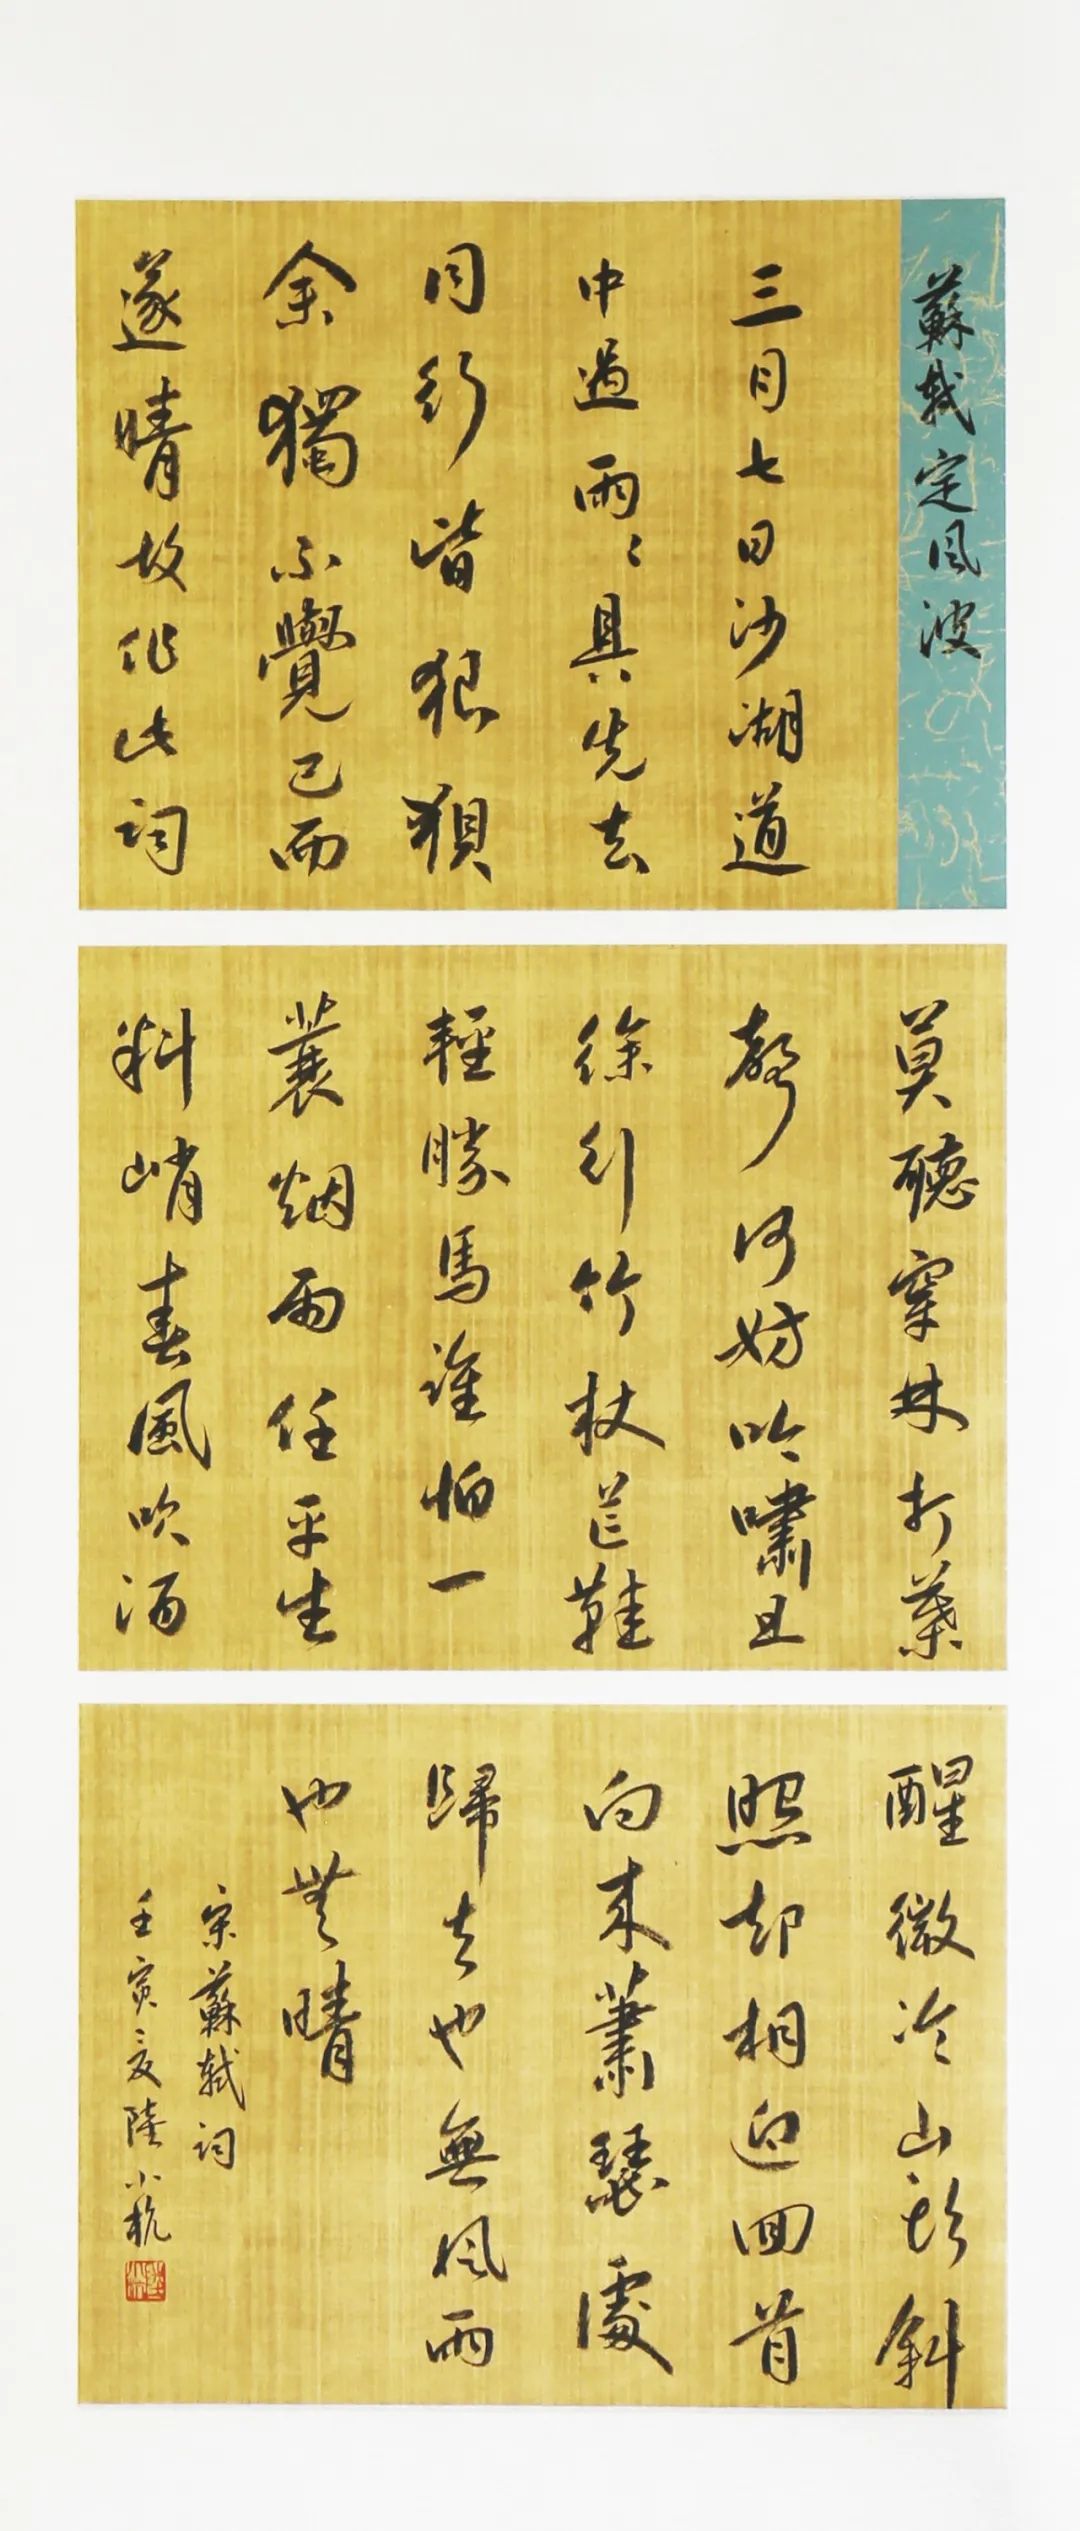 蘇軾定風波
三月七日沙湖道
中遇雨〻具先去
同行皆狼狽
余獨不覺已而
遂晴故作此詞
莫聽穿林打葉
聲何妨吟嘯且
徐行竹杖芒鞋
輕勝馬誰怕一
蓑烟雨任平生
料峭春風吹酒
醒微冷山頭斜
照却相迎回首
向來蕭瑟處
歸去也無風雨
也無晴
宋蘇軾詞
壬寅夏陸小杭